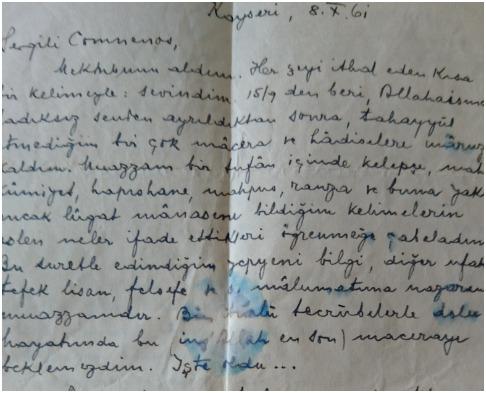 Kayseri, 8.X.61
Sevgili Comnenos,
Mektubunu aldım. Her şeyi ithal eden kısa
bir kelimeyle: sevindim. 15/9 den beri, Allahaısma
ladıksız senden ayrıldıktan sonra, tahayyül
etmediğim bir çok mâcera ve hâdiselere mâruz
kaldım. Muazzam bir tufân içinde kelepçe, mah
kûmiyet, hapishane, mahpus, ranza ve buna yakı
ancak lûgat mânasını bildiğim kelimelerin
neler ifade ettikleri öğrenmeğe çabaladım
Bu suretle edindiğim yepyeni bilgi, diğer ufak
tefek lisan, felsefe mâlumatıma nazaran
muazzamdır. tecrübelerle dolu
hayatımda bu (inşallah en son) macerayı
beklemezdim. İşte oldu...